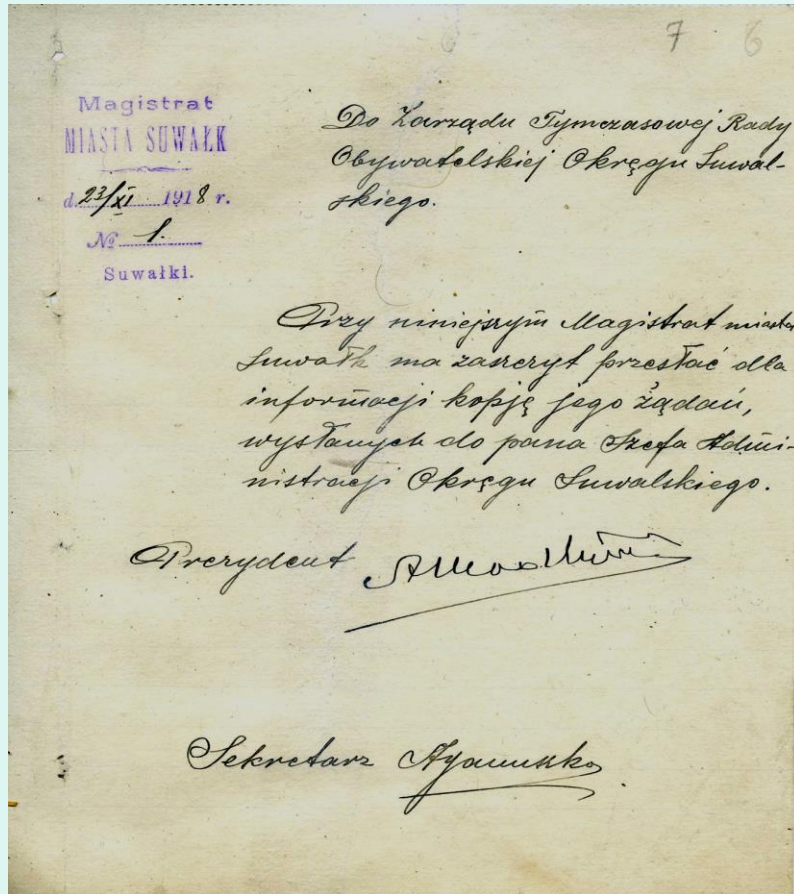 7 6
Magistrat
MIASTA SUWAŁK
d. 23/XI 1918 r.
№ 1.
Suwałki.
Do Zarządu Tymczasowej Rady
Obywatelskiej Okręgu Suwal-
skiego.
Przy niniejszym Magistrat miasta
Suwałk ma zaszczyt przesłać dla
informacji kopję jego żądań,
wysłanych do pana Szefa Admi-
nistracji Okręgu Suwalskiego.
Prezydent
Sekretarz